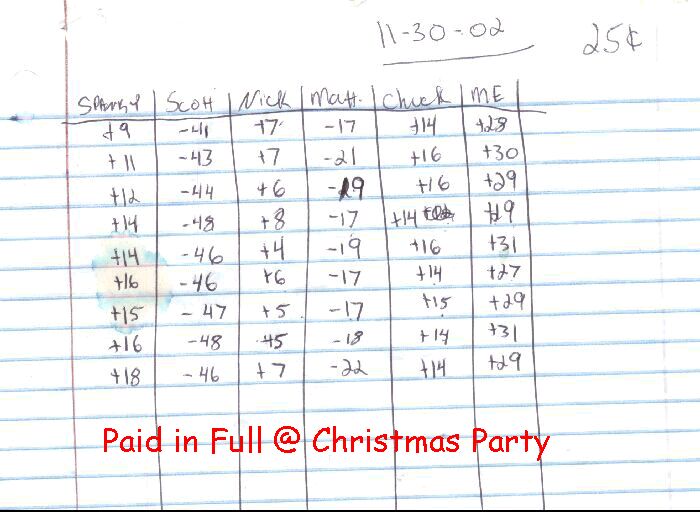 11-30-02 25¢
SPANKY Scott Nick Matt. Chuck ME
+9 -41 +7 -17 +14 +28
+11 -43 +7 -21 +16 +30
+12 -44 +6 -19 +16 +29
+14 -48 +8 -17 +14 +29
+14 -46 +4 -19 +16 +31
+16 -46 +6 -17 +14 +27
+15 -47 +5 -17 +15 +29
+16 -48 +5 -18 +14 +31
+18 -46 +7 -22 +14 +29
Paid in Full @ Christmas Party